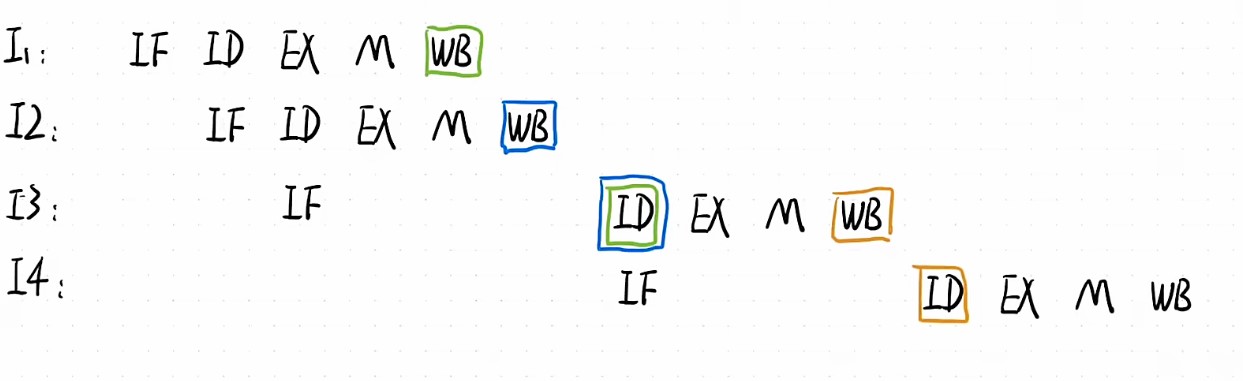 I1: IF ID EX M WB
I2: IF ID EX M WB
I3: IF ID EX M WB
I4: IF ID EX M WB